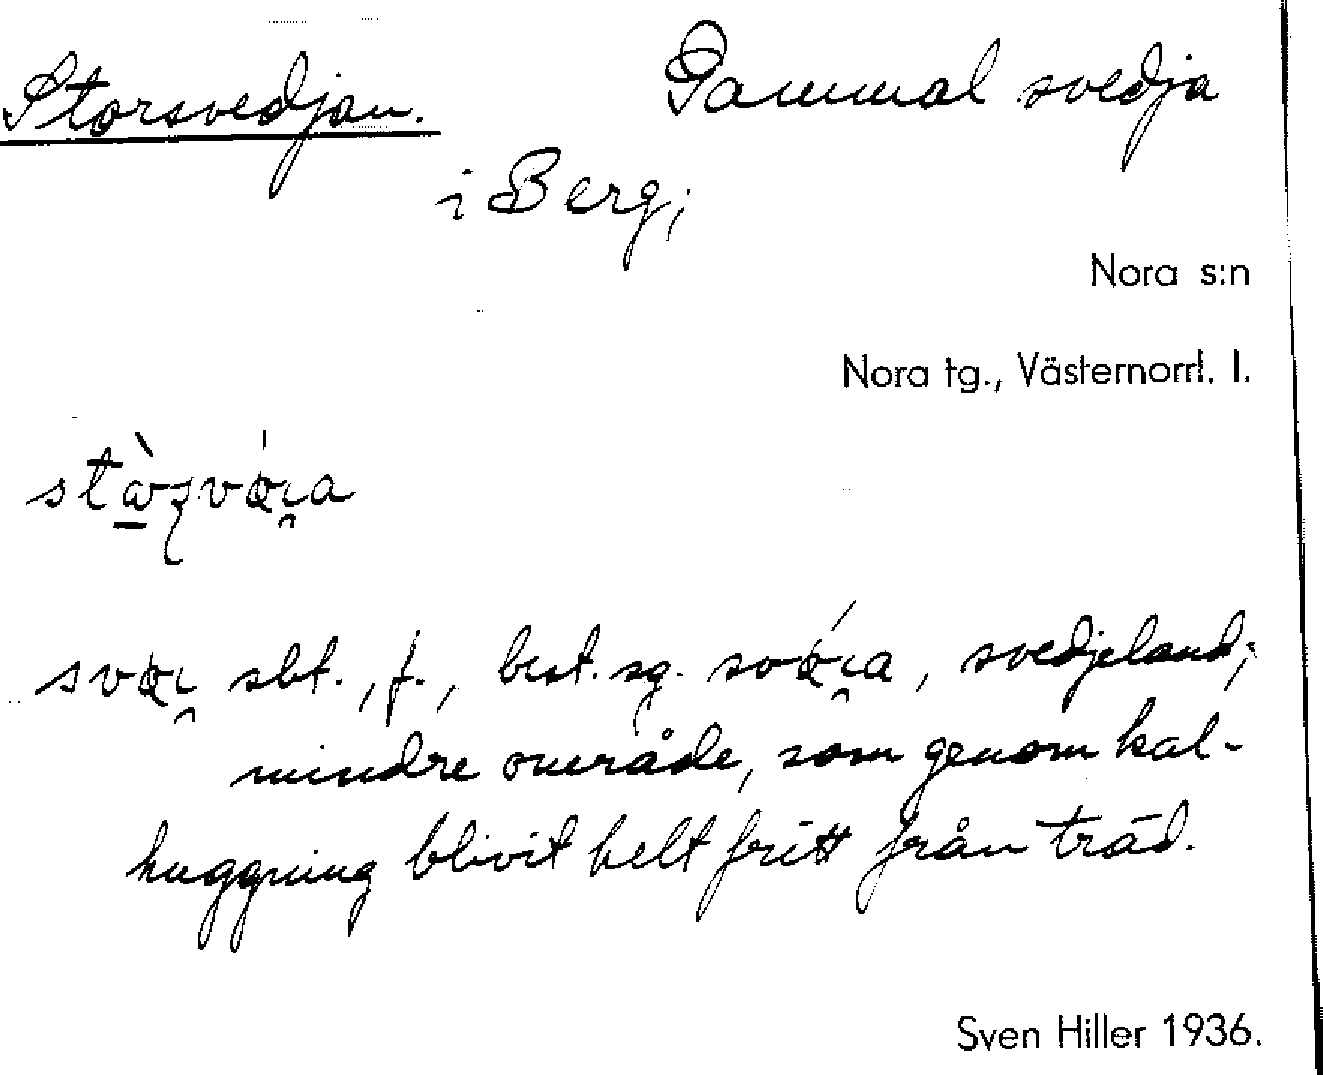 Storsvedjan. Gammal svedja
i Berg,
Nora s:n
Nora tg., Västernorrl. l.
sbt., f., best. sg. svedjeland;
mindre område, som genom kal-
huggning blivit helt fritt från träd.
Sven Hiller 1936.